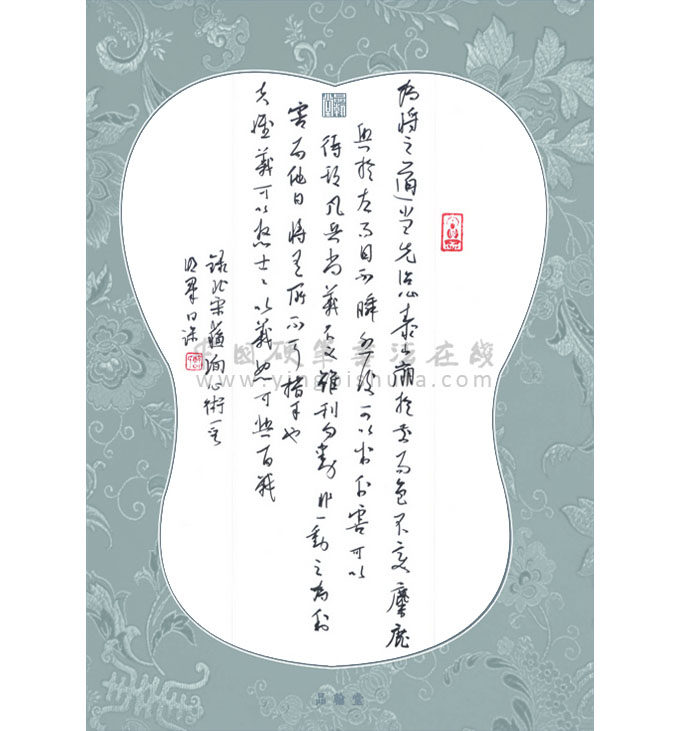 為將之道當先治心泰山崩於前而色不变麋鹿
興於左而目不瞬然後可以制利害可以
待敵凡兵尚義不义雖利勿動非一動之為利
害而他日將有所不可措手也
夫惟義可以怒士〻以義怒可與百戰
錄北宋蘇洵心術一章
日課
中国硬笔书法在线
www.yingbishufa.com
品翰堂